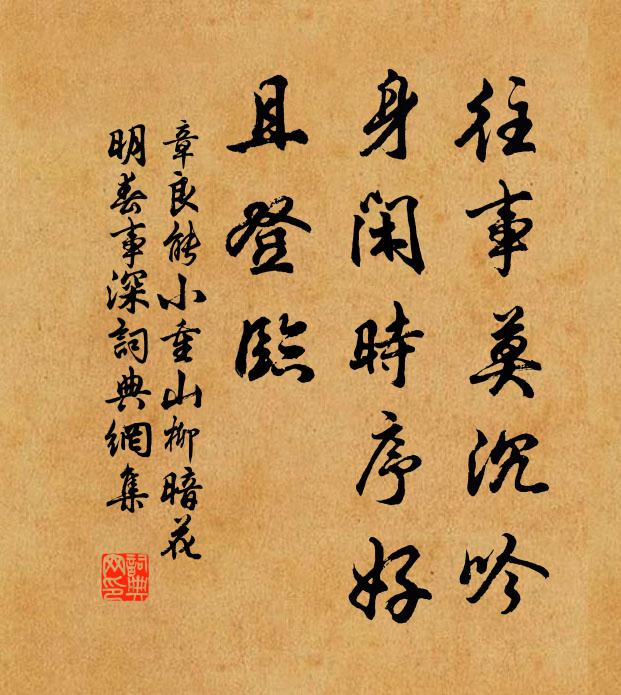 往事莫沉吟
身閑時序好
且登臨
章良能小重山柳暗花
明春事深詞典網集
詞典
网印